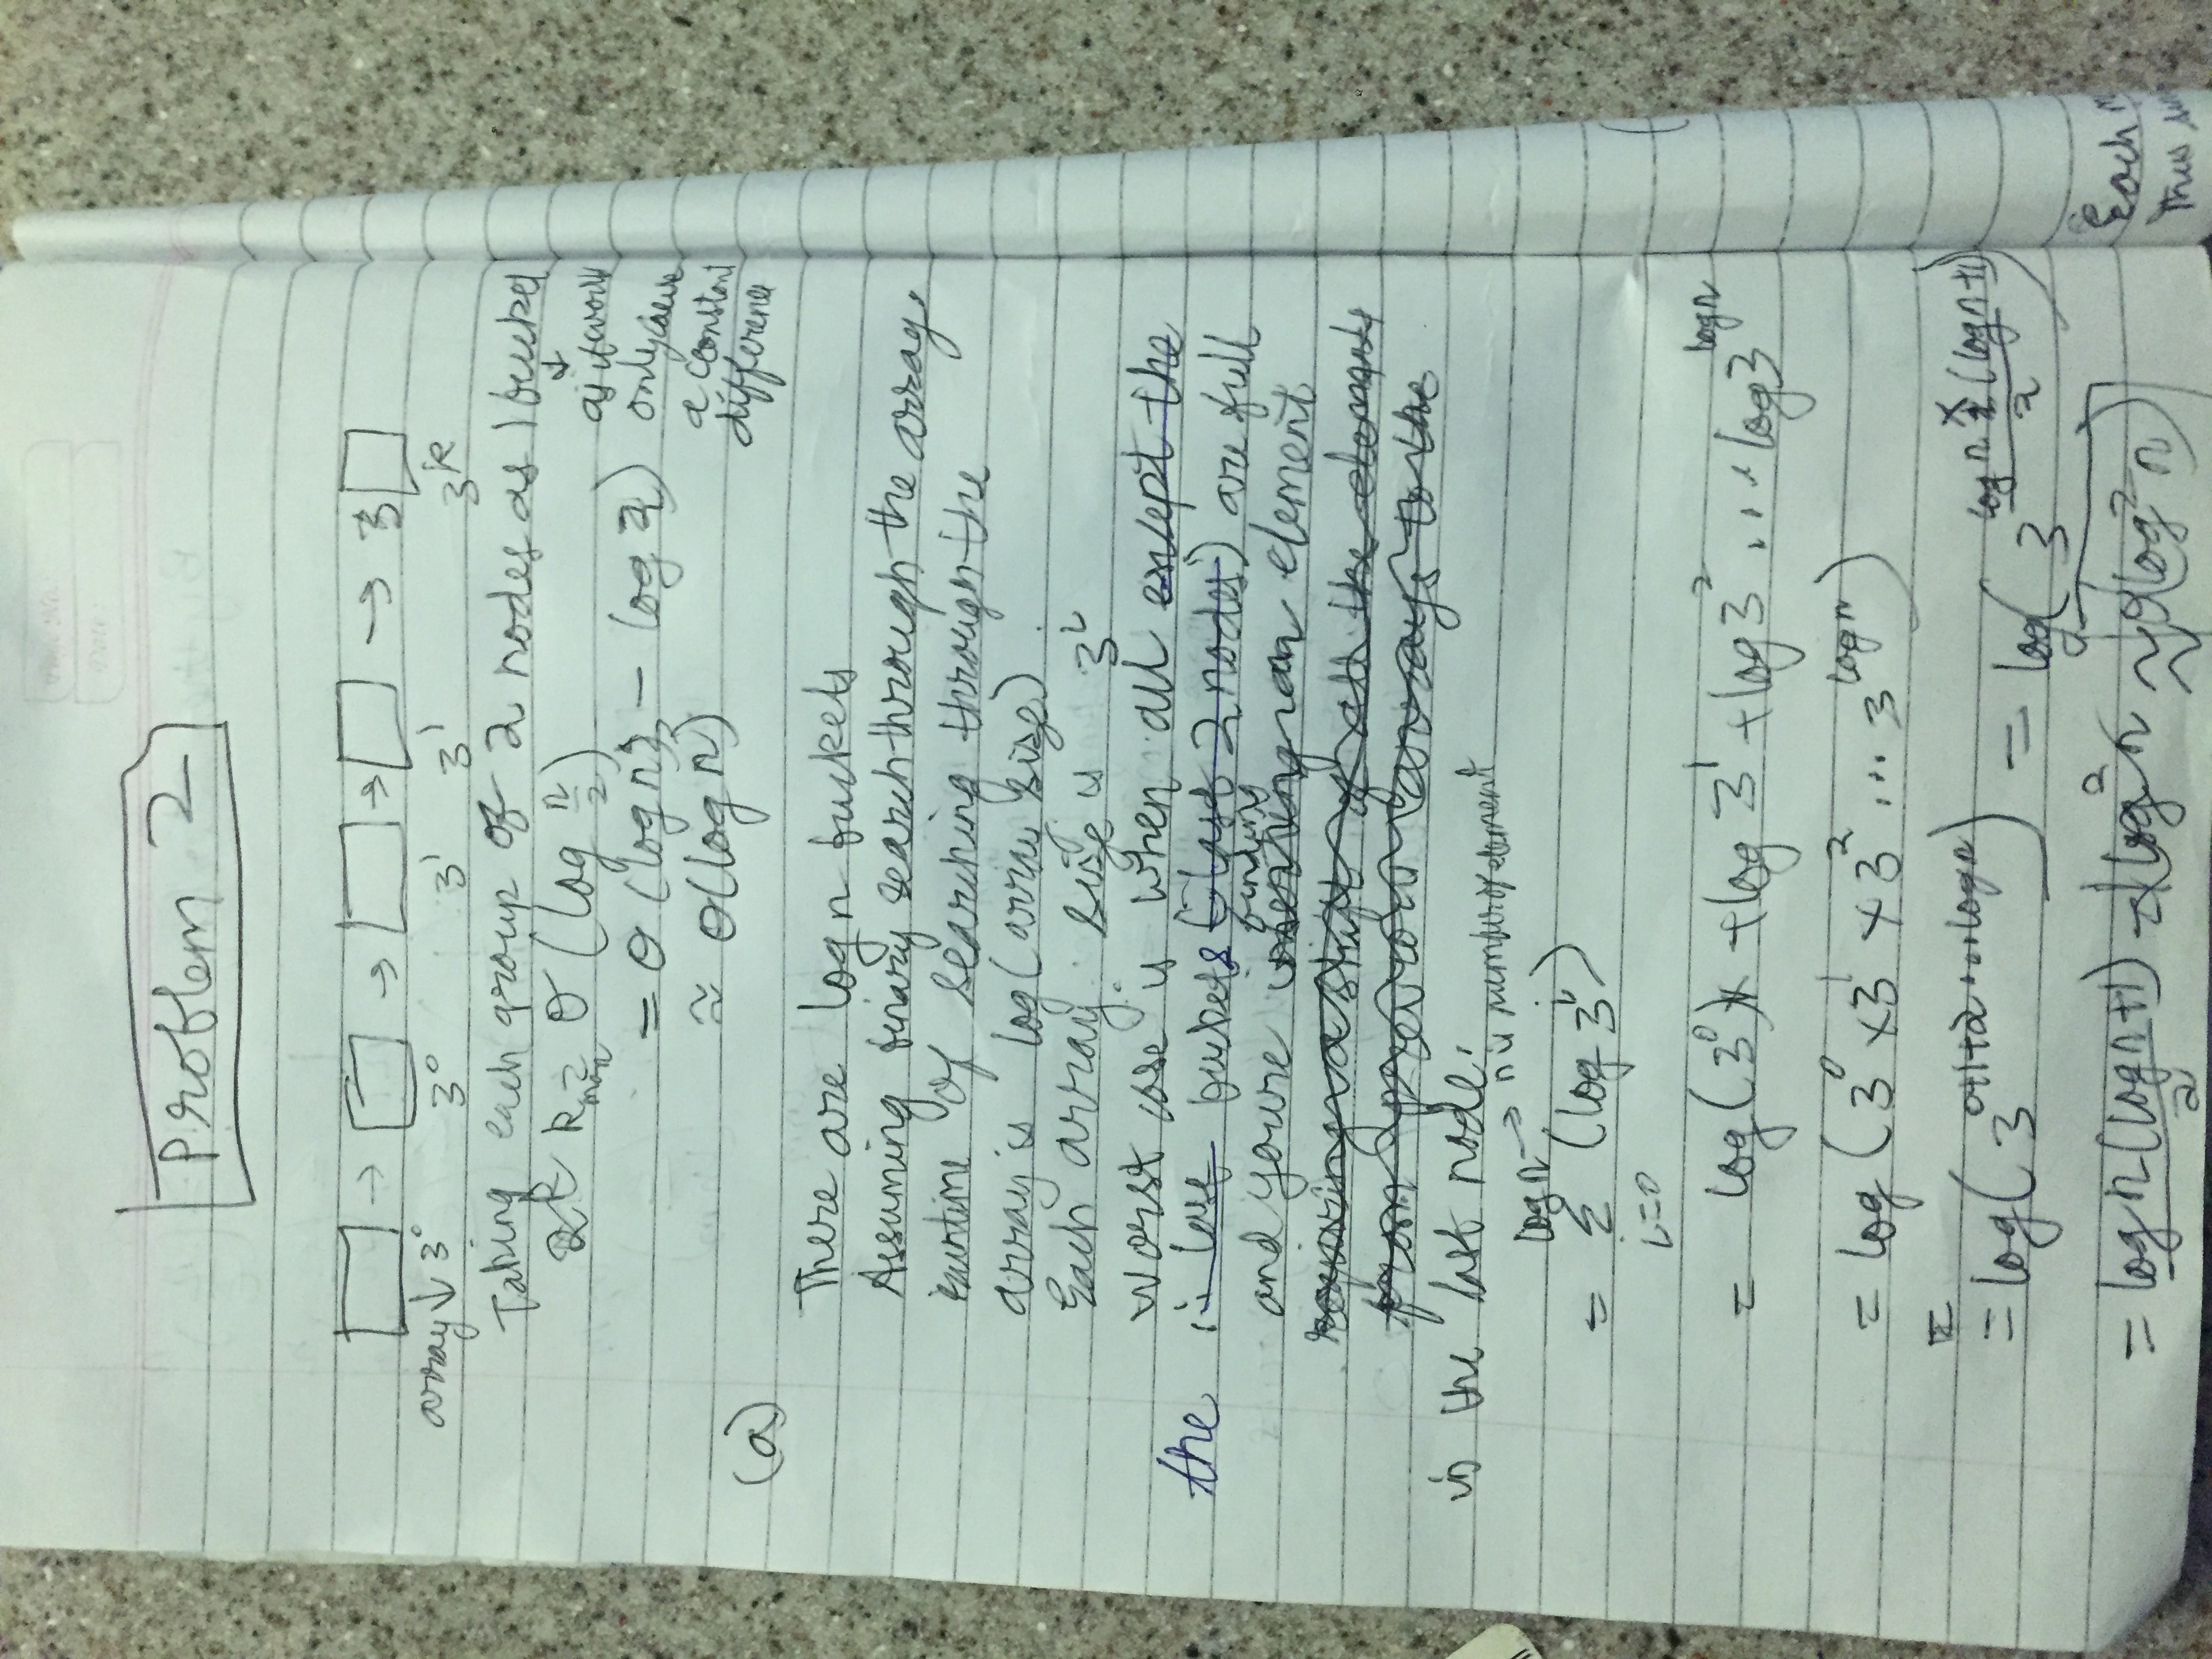 Problem 2
→ → → → 3
array ↓ 3⁰ 3⁰ 3¹ 3¹ 3ᵏ
Taking each group of 2 nodes as 1 bucket
↓
2ᵏ k_max = θ(log n/2)
as it would
only cause
a constant
difference
= θ(log n) - log 2)
≈ θ(log n)
(a)
There are log n buckets
Assuming binary search through the array.
runtime of searching through the
array is log(array size).
Each array size is 3ⁱ
worst case is when all except the
the last buckets (last 2 nodes) are full
finding
and youre inserting an element
requiring a shift of all the elements
from previous arrays to the
in the last node.
log n → n is number of element
= Σ (log 3ⁱ)
i=0
= log(3⁰) + log 3¹ + log 3² ... log 3^log n
= log (3⁰ × 3¹ × 3² ... 3^log n)
= log(3^0+1+2...log n) = log(3^log n × (log n+1)/2)
= log n (log n+1)/2 = log² n ≈ θ(log² n)
Each
This